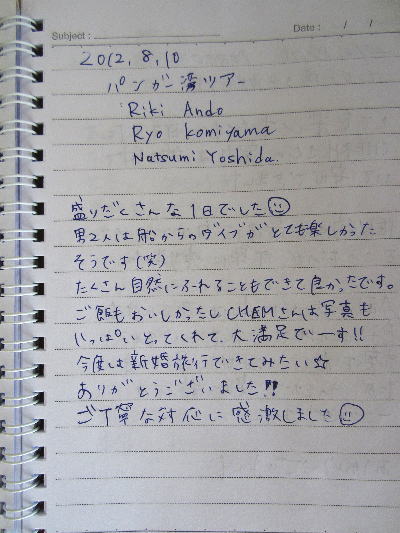 Subject:
Date : / /
2012.8.10
パンガー湾ツアー
Riki Ando
Ryo Komiyama
Natsumi Yoshida.
盛りだくさんな1日でした☺
男2人は船からのダイブがとても楽しかった
そうです(笑)
たくさん自然にふれることもできて良かったです。
ご飯もおいしかったし CHEMさんは写真も
いっぱいとってくれて、大満足でーす!!
今度は新婚旅行できてみたい☆
ありがとうございました!!
ご丁寧な対応に感激しました☺